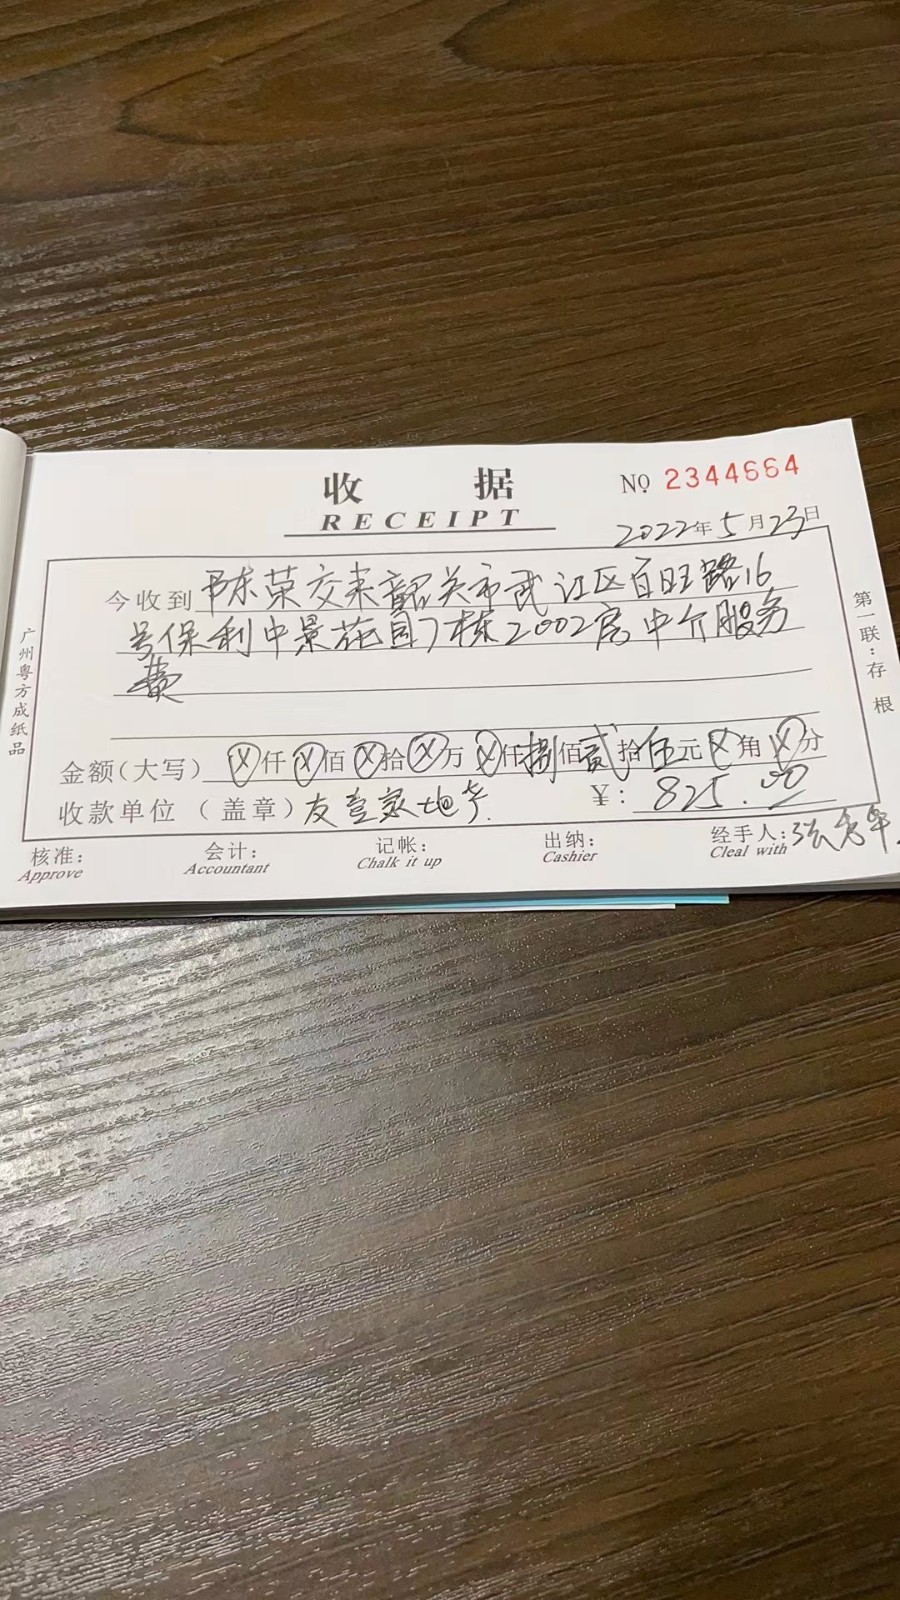 收 据
RECEIPT
NO 2344664
2022年5月23日
今收到 陈荣交来韶关市武江区百旺路16
号保利中景花园7栋2002房中介服务
费
金额(大写) ⓧ仟ⓧ佰ⓧ拾ⓧ万ⓧ仟捌佰贰拾伍元ⓧ角ⓧ分
收款单位(盖章) 友壹家地产. ¥: 825.00
核准: 会计: 记帐: 出纳: 经手人: 张秀华
Approve Accountant Chalk it up Cashier Cleal with
第一联:存根
广州粤方成纸品